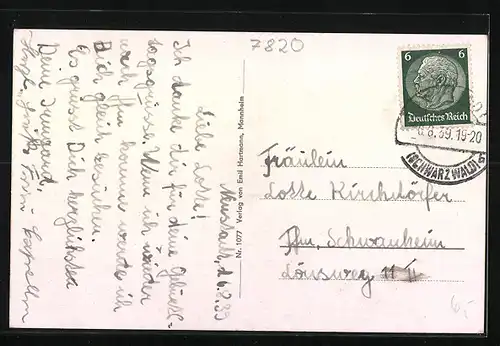 7820
Neustadt, d. 6.8.39
Liebe Lotte!
Ich danke dir für deine Geburts-
tagsgrüsse. Wenn ich wieder
nach Ffm komme werde ich
Dich gleich besuchen.
Es grüsst Dich herzlichst
Deine Irmgard.
Nr. 1077 Verlag von Emil Hartmann, Mannheim
6 6
Deutsches Reich
8.39.19-20
(SCHWARZWALD)
Fräulein
Lotte Kirchdörfer
Ffm. Schwanheim
11 II
6,-